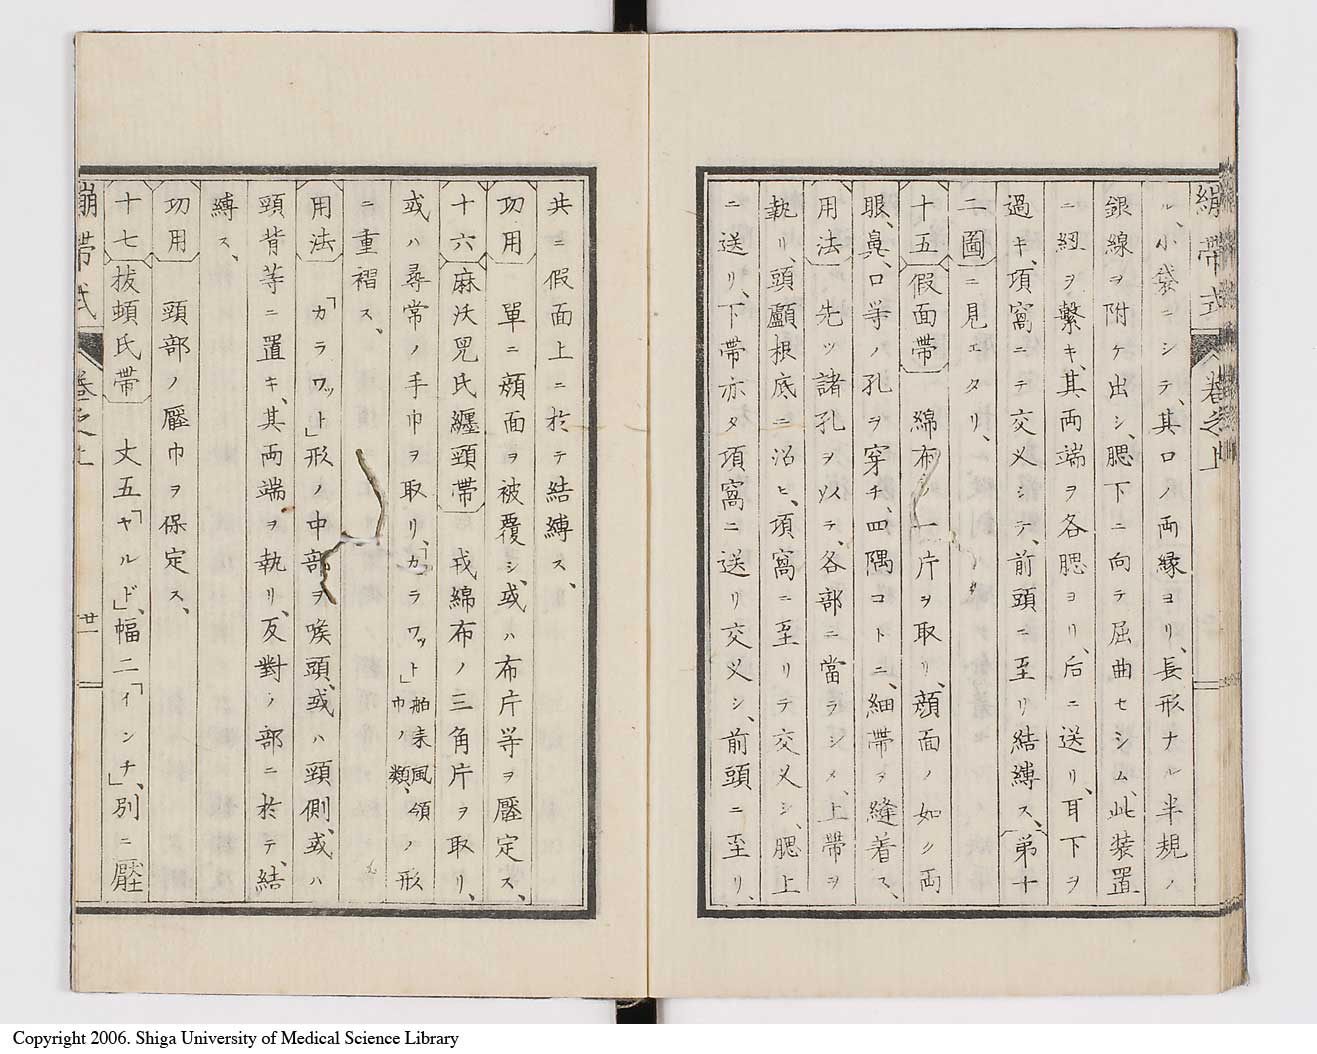 繃帶式 卷之上
ル、小袋ニシテ、其口ノ両縁ヨリ、長形ナル半規ノ
銀線ヲ附ケ出シ、腮下ニ向テ屈曲セシム、此装置
ニ紐ヲ繋キ、其両端ヲ各腮ヨリ、后ニ送リ、耳下ヲ
過キ、項窩ニテ交叉シテ、前頭ニ至リ結縛ス、第十
二圖ニ見エタリ、
十五假面帶 綿布ノ一片ヲ取リ、顔面ノ如ク両
眼、鼻、口等ノ孔ヲ穿チ、四隅コトニ、細帶ヲ縫着ス、
用法 先ツ諸孔ヲ以テ、各部ニ當ラシメ、上帶ヲ
執リ、頭顱根底ニ沿ヒ、項窩ニ至リテ交叉シ、腮上
ニ送リ、下帶亦タ項窩ニ送リ交叉シ、前頭ニ至リ、
共ニ假面上ニ於テ結縛ス、
功用 單ニ顔面ヲ被覆シ、或ハ布片等ヲ壓定ス、
十六麻沃児氏纏頸帶 我綿布ノ三角片ヲ取リ、
或ハ尋常ノ手巾ヲ取リ、「カラワット」舶来風領巾ノ類、ノ形
ニ重褶ス、
用法 「カラワット」形ノ中部ヲ喉頭、或ハ頸側、或ハ
頸背等ニ置キ、其両端ヲ執リ、反對ノ部ニ於テ、結
縛ス、
功用 頸部ノ壓巾ヲ保定ス、
十七拔頓氏帶 丈五「ヤルド」、幅二「インチ」、別ニ壓
繃帶式 卷之上 廿一
Copyright 2006. Shiga University of Medical Science Library